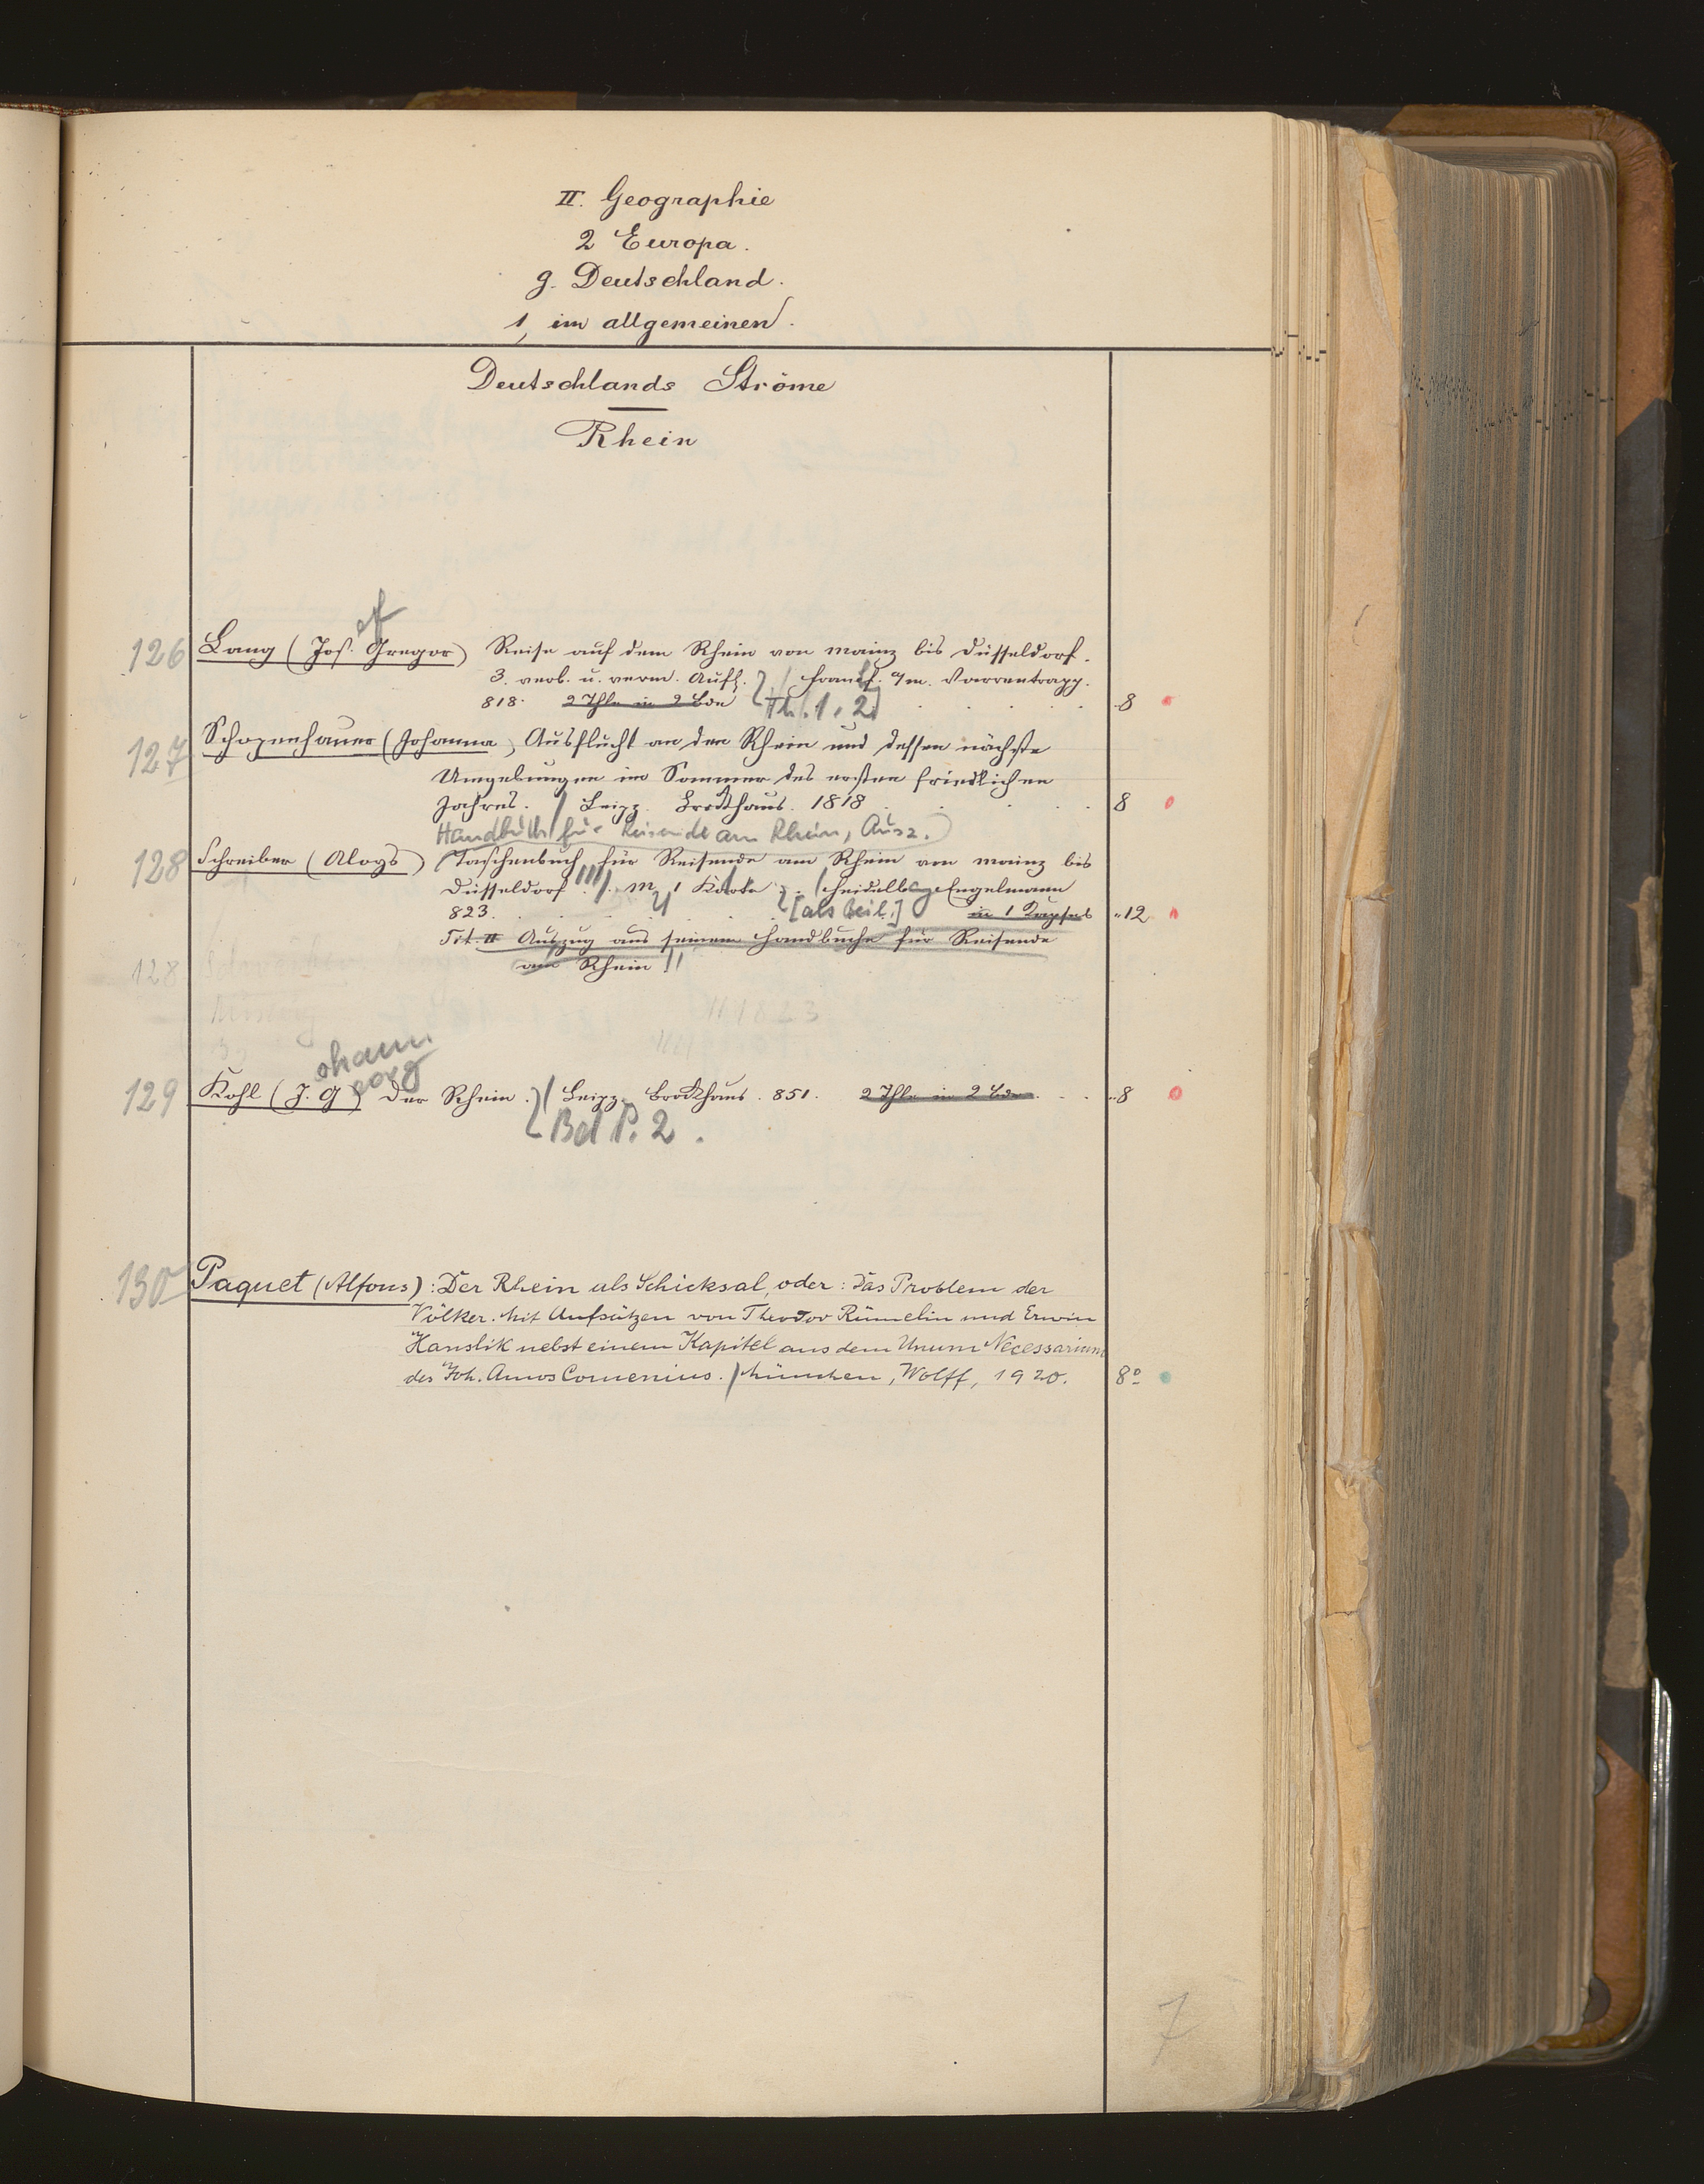 II. Geographie
2 Europa.
g. Deutschland.
1, im allgemeinen.
Deutschlands Ströme
Rhein
ef
126 Lang (Jos. Gregor) Reise auf dem Rhein von Mainz bis Düsseldorf.
3. verb. u. verm. Aufl. / Frankf. a/m. Varrentrapp.
818. 2 Thle in 2 Bdn [Th. 1. 2] 8
127 Schopenhauer (Johanna) Ausflucht an den Rhein und dessen nächste
Umgebungen im Sommer des ersten friedlichen
Jahres. / Leipz. Brockhaus. 1818 8
Handbuch für Reisende am Rhein, Ausz.)
128 Schreiber (Aloys) Taschenbuch für Reisende am Rhein von Mainz bis
Düsseldorf. M. 1 Karte. / Heidelberg Engelmann
823. [als Beil.] in 1 Kapsel 12
Tit. II Auszug aus seinem Handbuche für Reisende
am Rhein
128
1823
ohann
eorg
129 Kohl (J. G) Der Rhein. / Leipz. Brockhaus. 851. 2 Thle in 2 Bdn 8
Bd 1. 2.
130 Paquet (Alfons): Der Rhein als Schicksal, oder: Das Problem der
Völker. Mit Aufsätzen von Theodor Rümelin und Erwin
Hanslik nebst einem Kapitel aus dem Unum Necessarium
des Joh. Amos Comenius. / München, Wolff, 1920. 8°
7